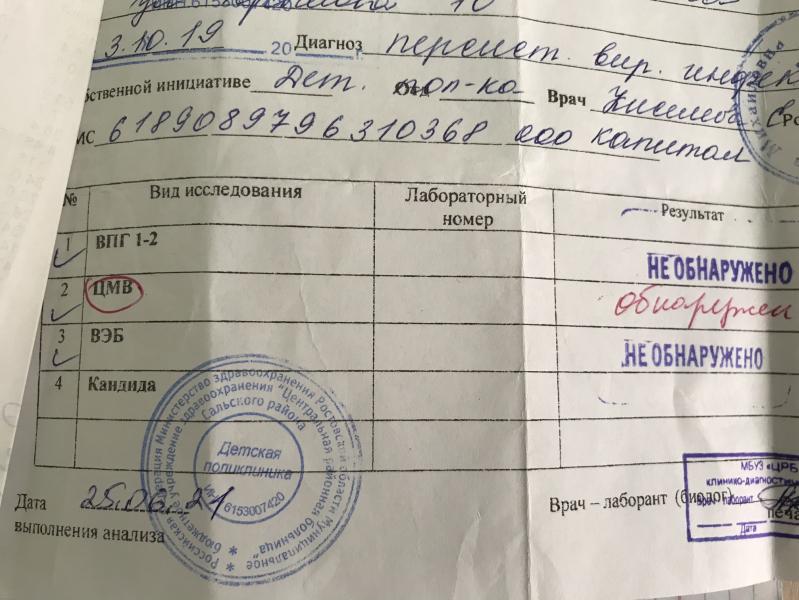 3.10.19 20 г. Диагноз персист. вир. инфек
бственной инициативе Дет. пол-ка Отд Врач
ИС 6189089796310368 ооо капитал
№ Вид исследования Лабораторный номер Результат
1 ВПГ 1-2 НЕ ОБНАРУЖЕНО
2 ЦМВ обнаружен
3 ВЭБ НЕ ОБНАРУЖЕНО
4 Кандида
Российская Федерация Министерство здравоохранения Ростовской области Муниципальное
бюджетное учреждение здравоохранения "Центральная районная больница"
Сальского района
Детская
поликлиника
6153007420
Дата 25.06.21
выполнения анализа
Врач – лаборант (биолог)
МБУЗ «ЦРБ
клинико-диагностич
Врач лаборант
Дата
печа
Михайловна